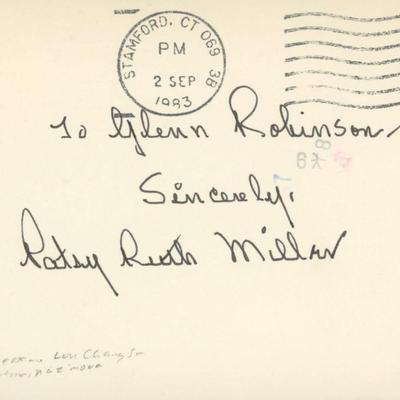 STAMFORD, CT 069 3B
PM
2 SEP
1983
To Glenn Robinson
Sincerely,
Patsy Ruth Miller
Lon Chaney Sr
Nazimova